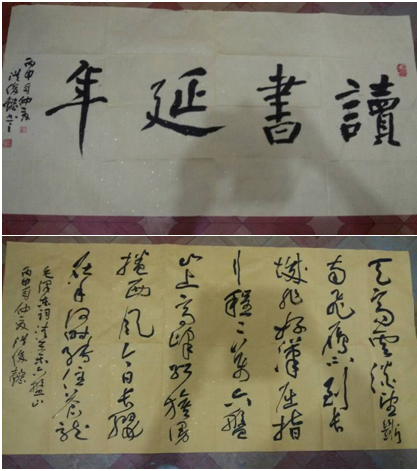 讀書延年
丙申仲夏
洪俊
天高雲淡望斷
南飛雁不到長
城非好漢屈指
行程二萬六盤
山上高峰紅旗漫
捲西風今日長纓
在手何時縛住蒼龍
毛澤東詞清平樂六盤山
丙申仲夏洪俊